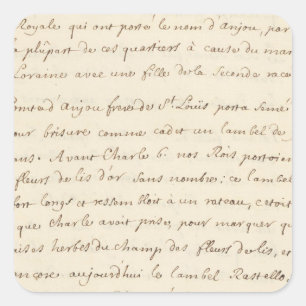 Royale qui ont porté le nom d'Anjou, par
plûpart de ces quartiers à cause du mar
Loraine avec une fille de la Seconde race
omte d'Anjou frere de St. Louïs porta Semé
our brisure comme cadet un lambel de
ns. Avant Charle 6. nos Rois portoien
fleurs de lis d'or Sans nombres; ce lambel
fort long et ressembloit à un rateau, c'etoit
que Charle avoit prise, pour marquer qu
ises herbes du champ des fleurs de lis, et
ncore aujourdhui le lambel Rastello